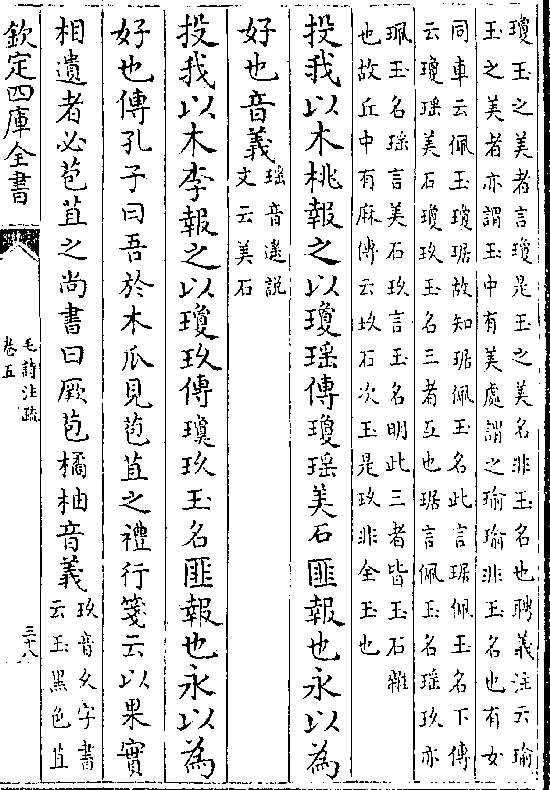 瓊玉之美者言瓊是玉之美名非玉名也聘義注云瑜
玉之美者亦謂玉中有美處謂之瑜瑜非玉名也有女
同車云佩玉瓊琚故知琚佩玉名此言琚佩玉名下傳
云瓊瑤美石瓊玖玉名三者互也琚言佩玉名瑤玖亦
珮玉名瑤言美石玖言玉名明此三者皆玉石雜
也故丘中有麻傳云玖石次玉是玖非全玉也
投我以木桃報之以瓊瑤傳瓊瑤美石匪報也永以為
好也音義
瑤音遙說
文云美石
投我以木李報之以瓊玖傳瓊玖玉名匪報也永以為
好也傳孔子曰吾於木瓜見苞苴之禮行箋云以果實
相遺者必苞苴之尚書曰厥苞橘柚音義
玖音久字書
云玉黑色苴
欽定四庫全書
毛詩注疏
卷五
三十八